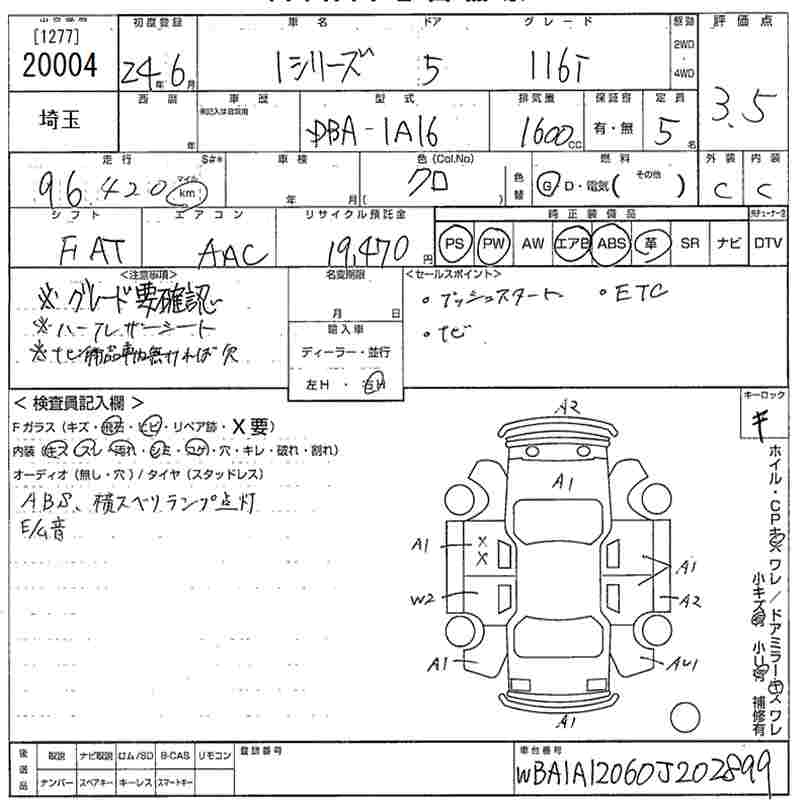 [1277]
20004
初度登録
24年6月
車名 ドア グレード
1シリーズ 5 116i
駆動
2WD
・
4WD
評価点
3.5
埼玉
西暦
年
車歴
型式
DBA-1A16
排気量
1600cc
保証書
有・無
定員
5名
走行 S#*
96,420 マイル km
車検
年 月
色 (Col.No)
クロ
( )
色替
燃料
G D・電気( その他 )
外装
C
内装
C
シフト
FAT
エアコン
AAC
リサイクル預託金
19,470円
純正装備品
PS PW AW エアB ABS 革 SR ナビ DTV
<注意事項>
※グレード要確認
※ハーフレザーシート
※ナビ備品車内無ければ欠
名変期限
月 日
輸入車
ディーラー・並行
左H・右H
<セールスポイント>
・プッシュスタート ・ETC
・ナビ
<検査員記入欄>
Fガラス(キズ・飛石・ヒビ・リペア跡・X要)
内装(キズ・スレ・汚れ・シミ・コゲ・穴・キレ・破れ・割れ)
オーディオ(無し・穴)/タイヤ(スタッドレス)
ABS、横スベリランプ点灯
E/G音
キーロック
キ
A2
A1
A1 X X
A1
W2
A2
A1
AU1
A1
ホイル・CPキズ ワレ/ドアミラーキズ ワレ
小キズ有 小U有 補修有
後送品
取説 ナビ取説 ロム/SD B-CAS リモコン
ナンバー スペアキー キーレス スマートキー
登録番号
車台番号
WBA1A12060J202899